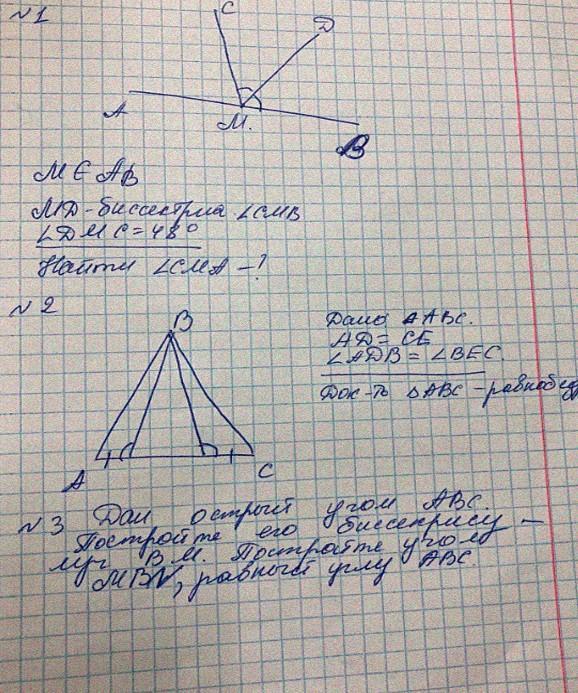 №1
C
D
A
M.
B
M ∈ AB
MD - биссектриса ∠CMB
∠DMC = 48°
Найти ∠CMA - ?
№2
B
A
C
Дано △ABC.
AD = CE
∠ADB = ∠BEC
Док-ть △ABC - равнобед
№3 Дан острый угол ABC.
Постройте его биссектрису -
луч BM. Постройте угол
MBN, равный углу ABC.